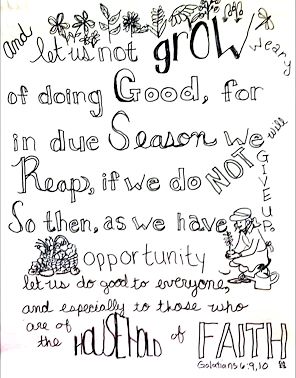 and let us not grow weary
of doing Good, for
in due Season we will
Reap, if we do NOT GIVE UP.
So then, as we have
opportunity
let us do good to everyone,
and especially to those who
are of the HOUSEHOLD of FAITH
Galatians 6:9,10